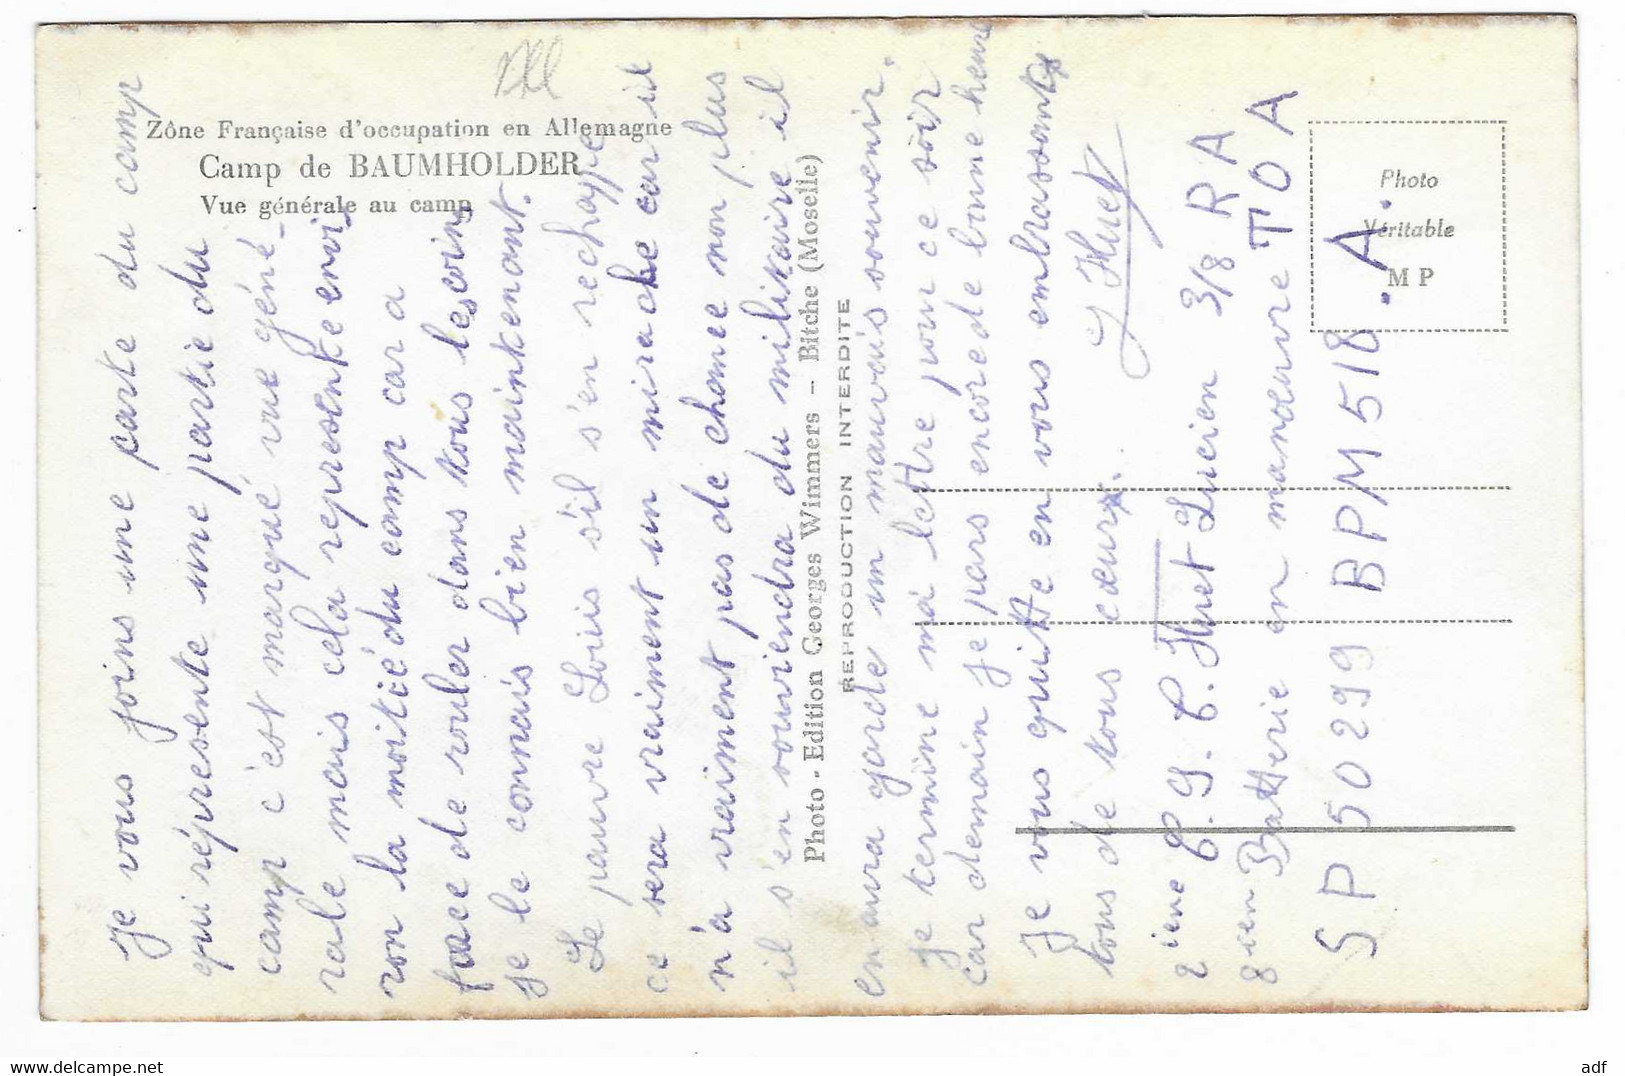 Zône Française d'occupation en Allemagne
Camp de BAUMHOLDER
Vue générale au camp
Photo - Edition Georges Wimmers - Bitche (Moselle)
REPRODUCTION INTERDITE
Photo
Véritable
M P
Je vous joins une carte du camp
qui répresente une partie du
camp c'est marqué vue géné-
rale mais cela represente envi-
ron la moitié du camp car a
force de rouler dans tous les coins
je le connais bien maintenant.
Le pauvre Loius s'il s'en rechappe
ce sera vraiment un mirache car il
n'a vraiment pas de chance non plus
il s'en souviendra du militaire il
en aura garde un mauvais souvenir.
je termine ma lettre pour ce soir
car demain je pars encore de bonne heure
Je vous quitte en vous embrassant
tous de tous cœur.
Huet
2 ieme C. G. C. Huet Lucien 3/8 RA
8 ien Batterie en manoeuvre TOA
SP 50299 BPM 518. A.
adf